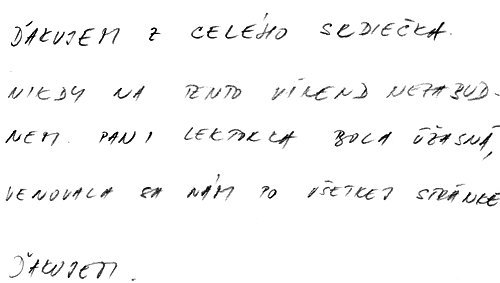 ĎAKUJEM Z CELÉHO SRDIEČKA.
NIKDY NA TENTO VÍKEND NEZABUD-
NEM. PANI LEKTORKA BOLA ÚŽASNÁ,
VENOVALA SA NÁM PO VŠETKEJ STRÁNKE
ĎAKUJEM.